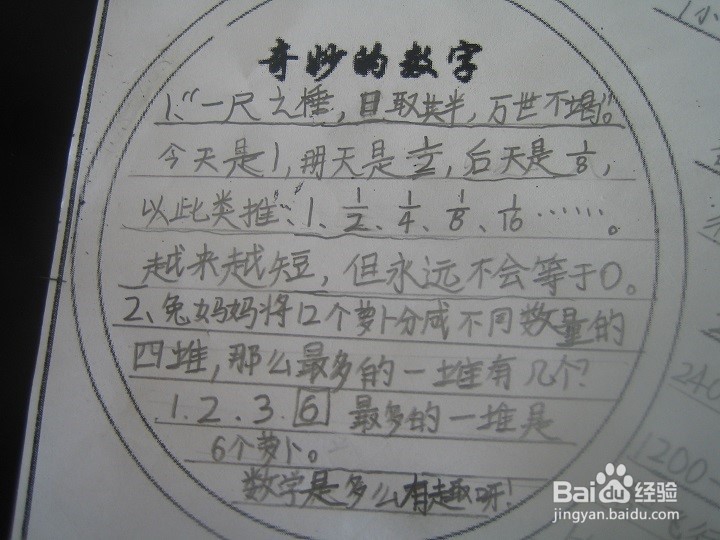 奇妙的数字
1、“一尺之棰，目取其半，万世不竭。”
今天是1，明天是1/2，后天是1/8，
以此类推：1、1/2、1/4、1/8、1/16……。
越来越短，但永远不会等于0。
2、兔妈妈将12个萝卜分成不同数量的
四堆，那么最多的一堆有几个？
1.2.3.6 最多的一堆是
6个萝卜。
数学是多么有趣呀！
240
1200-
Baidu经验
jingyan.baidu.com